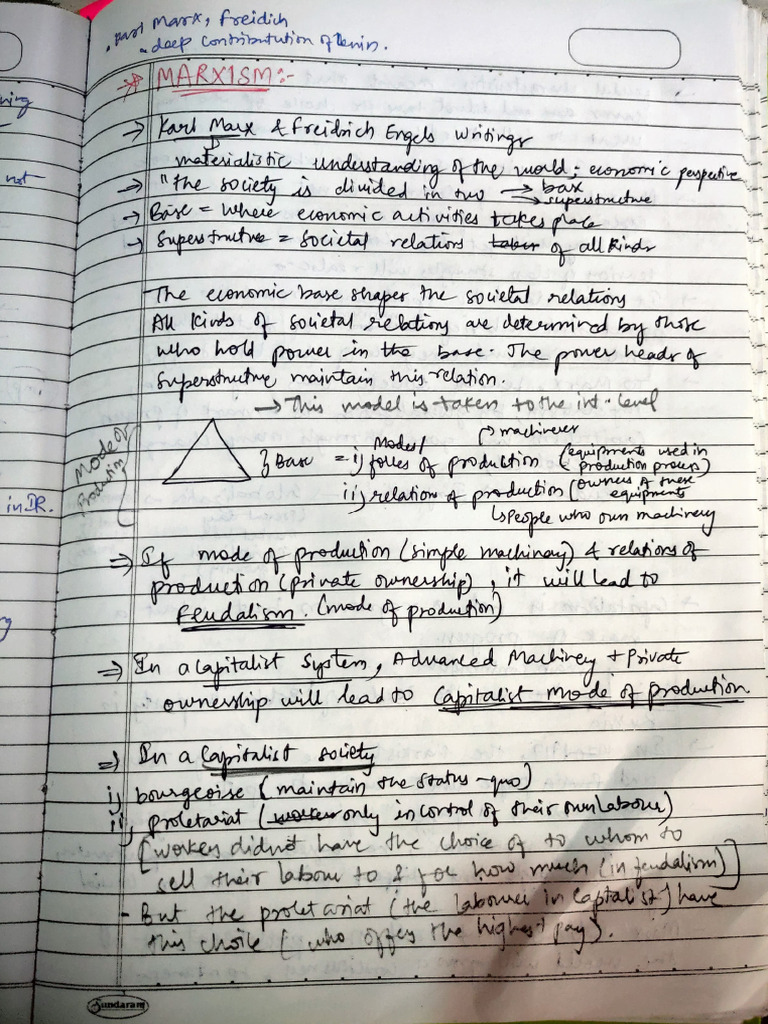 Karl Marx, Freidich
deep contribtution of lenin.
MARXISM:-
→ Karl Marx & Freidrich Engels writings
materialistic understanding of the world; economic perspective
→ "the society is divided in two → bax
→ superstructure
→ Base = where economic activities takes place
→ Superstructure = Societal relations taken of all kinds
The economic base shapes the societal relations
All kinds of societal relations are determined by those
who hold power in the base. The power heads of
Superstructure maintain this relation.
→ This model is taken to the int. level
Mode of
Production
} Base = i) Modes/ forces of production (equipments used in
production process)
→ machineries
ii) relation of production (owners of these
equipments
↳ People who own machinery
⇒ If mode of production (simple machinary) & relations of
production (private ownership), it will lead to
feudalism. (mode of production)
⇒ In a capitalist system, Advanced Machinery + Private
ownership will lead to Capitalist mode of production
⇒ In a Capitalist society
i) bourgeoise (maintain the status-quo)
ii) proletariat (workers only in control of their own labour)
[workers didn't have the choice of to whom to
sell their labour to & for how much (in feudalism)]
- But the proletariat (the labourer in Captalist) have
this choice (who offers the highest pay).
Sundaram
ning
not
in IR.